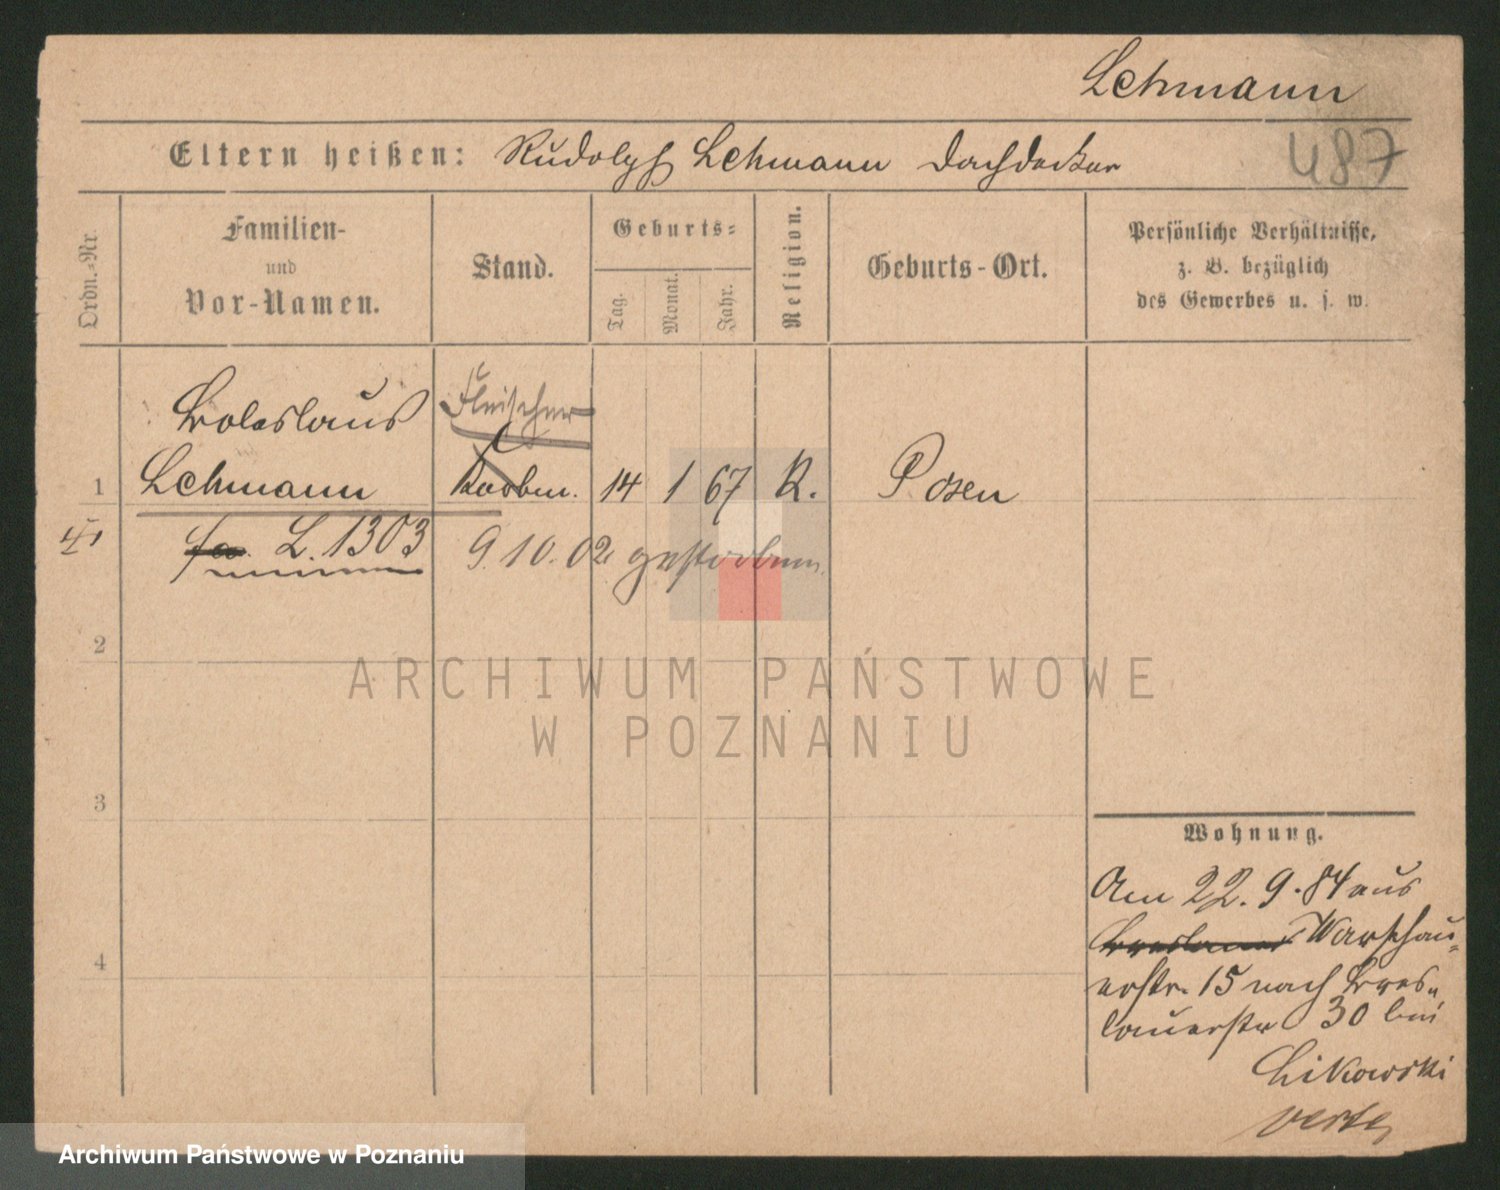 Lehmann
Eltern heißen: Rudolph Lehmann Dachdecker
487
Ordn.-Nr.
Familien-
und
Vor-Namen.
Stand.
Geburts-
Tag.
Monat.
Jahr.
Religion.
Geburts-Ort.
Persönliche Verhältnisse,
z. B. bezüglich
des Gewerbes u. s. w.
Boleslaus
Fleischer
1 Lehmann 14 1 67 K. Posen
L. 1303 9.10.02 gestorben
2
ARCHIWUM PAŃSTWOWE
W POZNANIU
3
4
Wohnung.
Am 22.9.84 aus
Breslauer Warschau-
erstr. 15 nach Bres-
lauerstr 30 bei
Likowski
verte
Archiwum Państwowe w Poznaniu